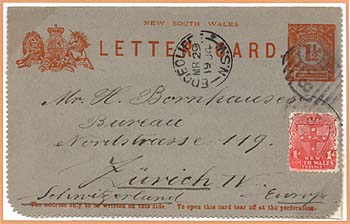 NEW SOUTH WALES
LETTER CARD.
1½
EDGECLIFF N.S.W
MR 29
Mr. H. Bornhausen
Bureau
Nordstrasse 119.
Zürich IV.
Switzerland Europe
NEW
SOUTH WALES
POSTAGE
The address only to be written on this side. To open this card tear off at the perforation.